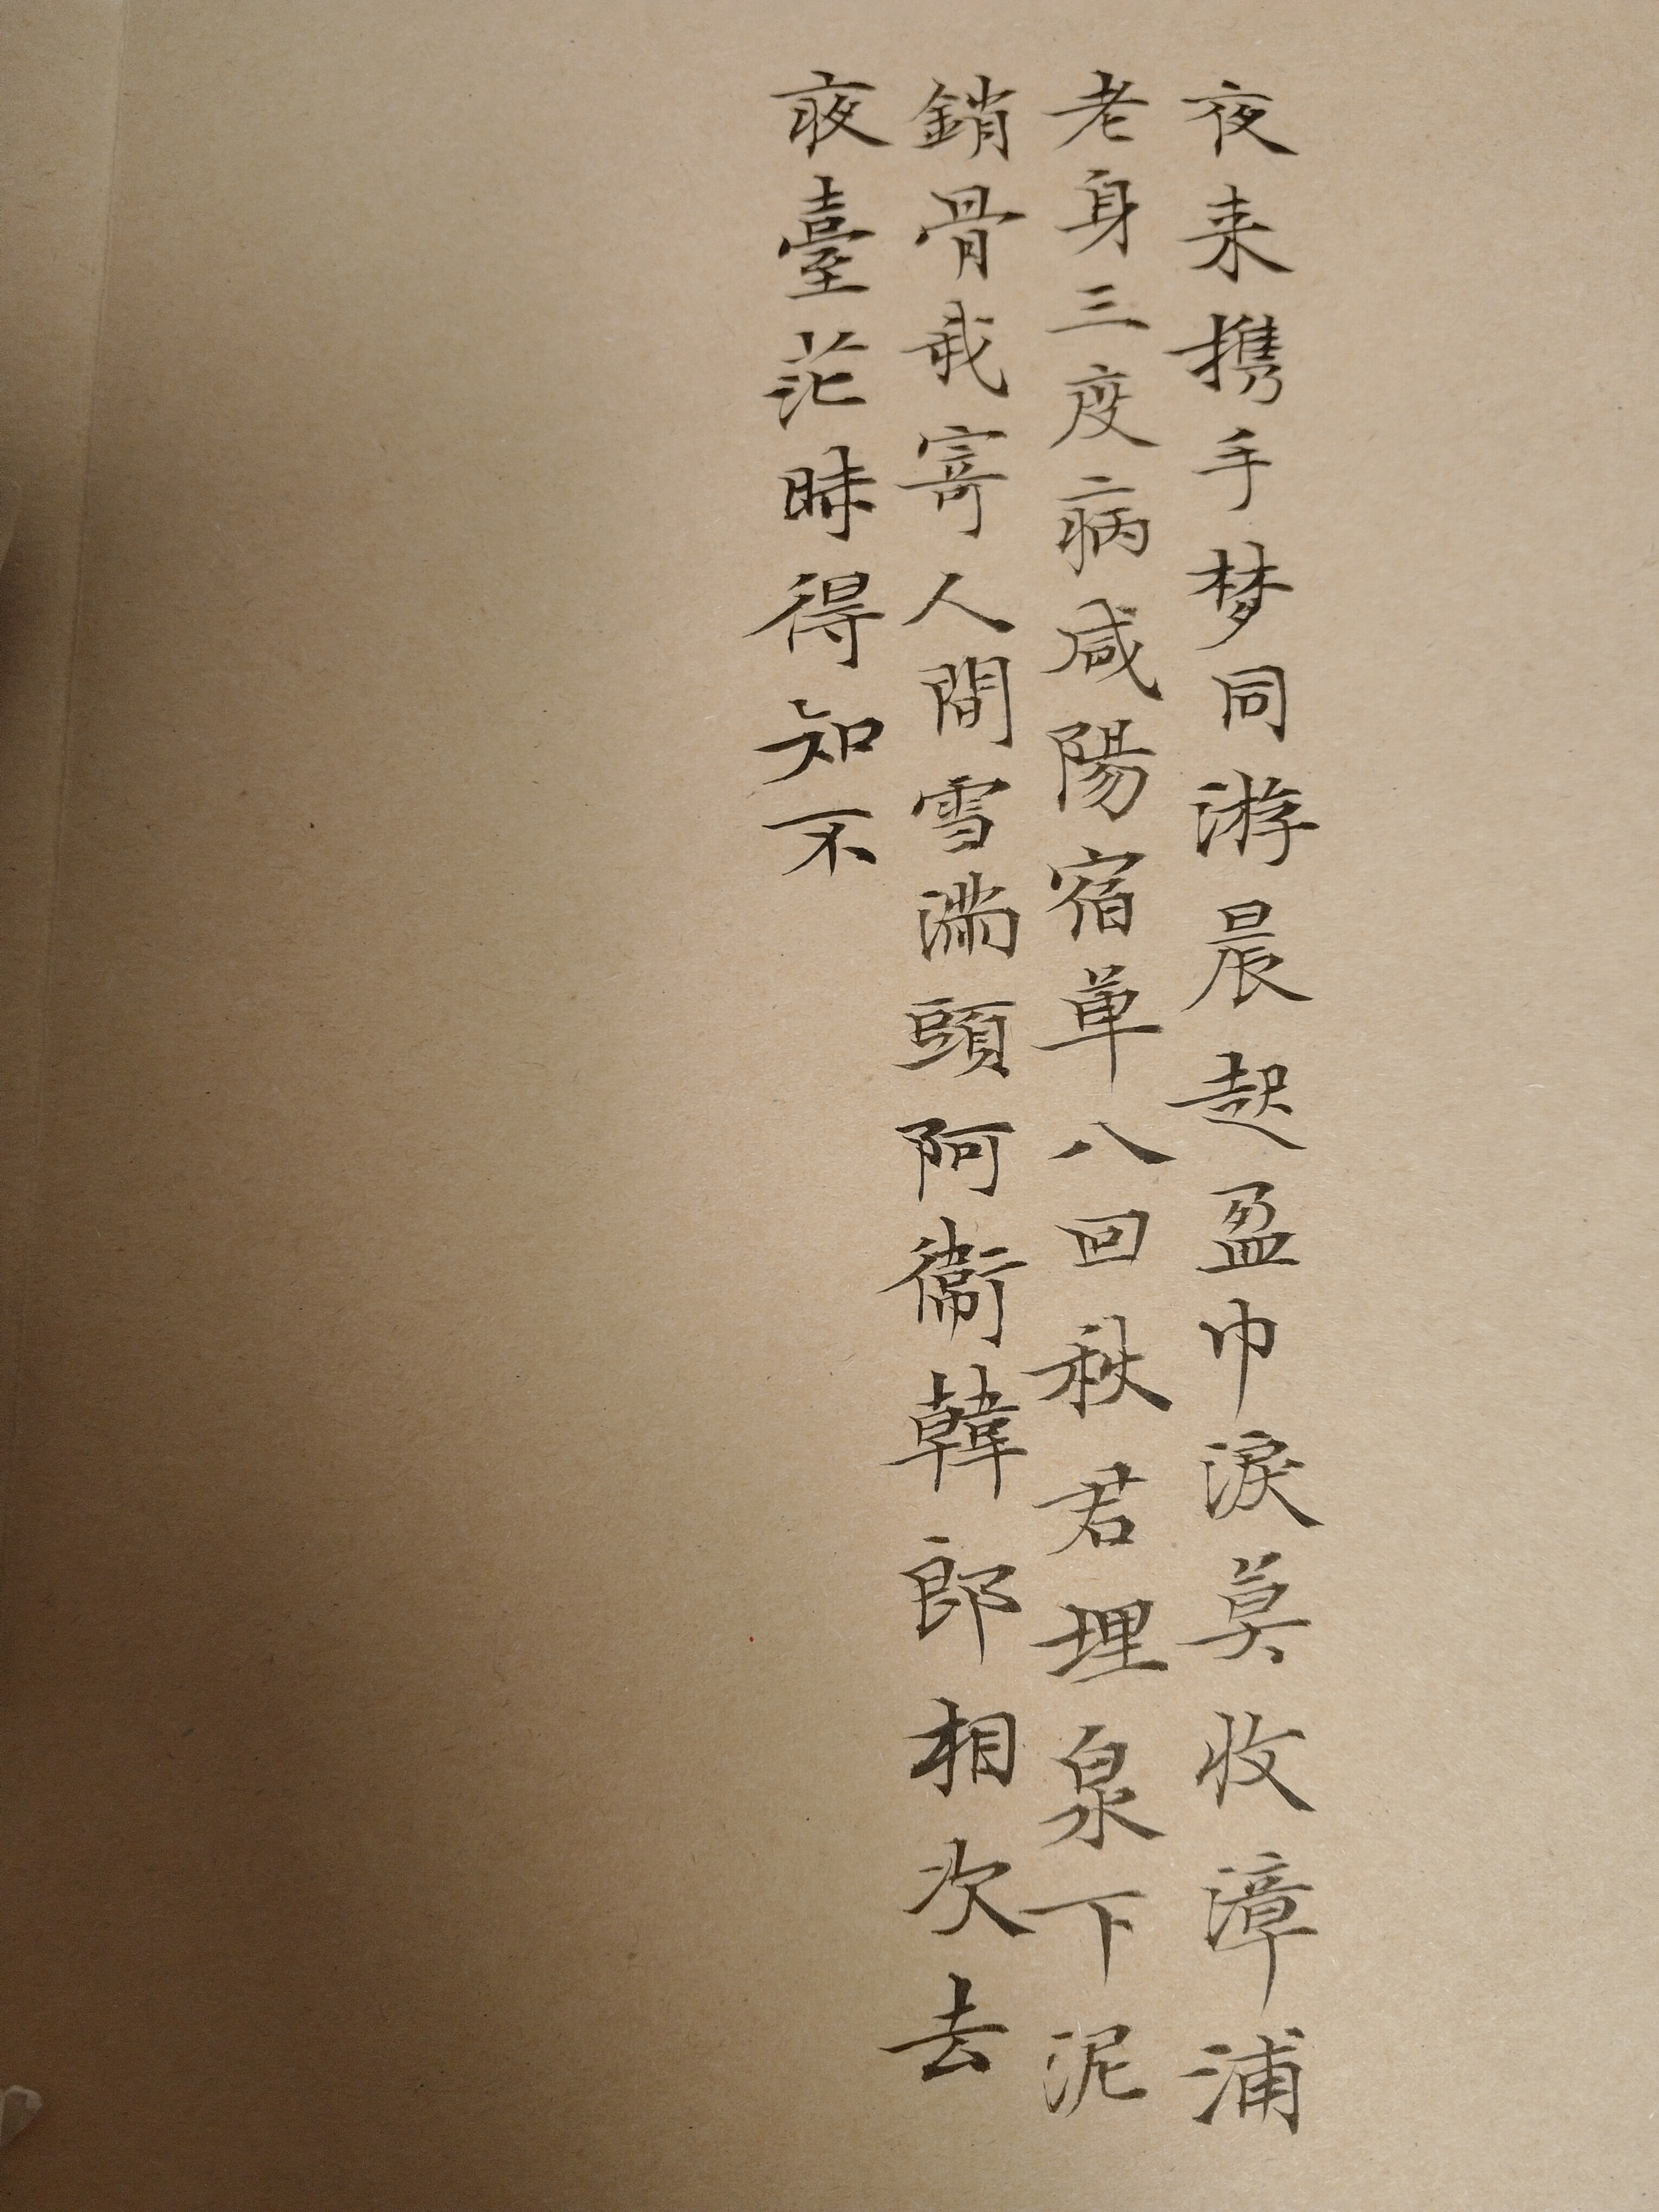 夜来携手梦同游晨起盈巾淚莫收漳浦
老身三度病咸陽宿草八回秋君埋泉下泥
銷骨我寄人間雪滿頭阿衞韓郎相次去
夜臺茫昧得知不